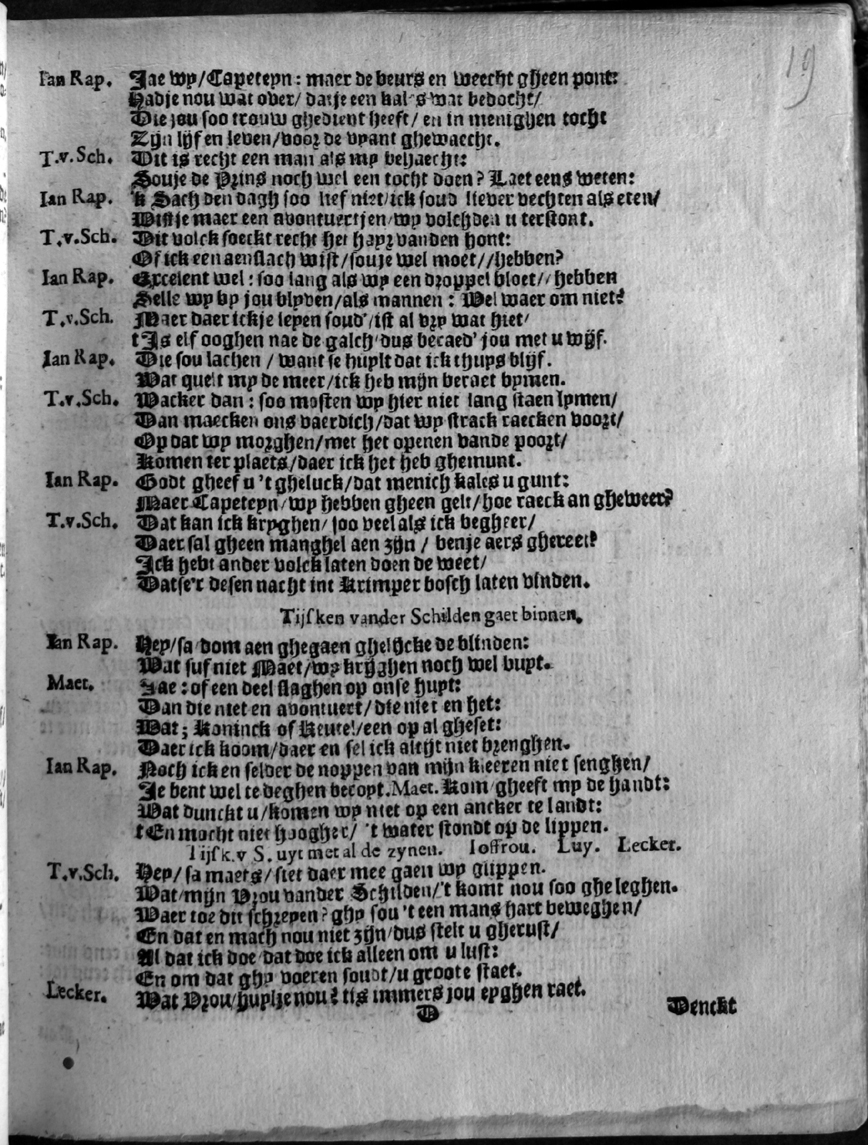 19
Ian Rap. Jae wy/Capeteyn: maer de beurs en weecht gheen pont:
Hadje nou wat over/ datje een kales wat bedocht/
Die jou soo trouw ghedient heeft/ en in menighen tocht
Zijn lijf en leven/voor de vyant ghewaecht.
T.v.Sch. Dit is recht een man als my behaecht:
Souje de Prins noch wel een tocht doen? Laet eens weten:
Ian Rap. 'k Sach den dagh soo lief niet/ick soud liever vechten als eten/
Wistje maer een avontuertjen/wy volchden u terstont.
T.v.Sch. Dit volck soeckt recht het hayr vanden hont:
Of ick een aenslach wist/souje wel moet//hebben?
Ian Rap. Excelent wel: soo lang als wy een droppel bloet//hebben
Selle wy by jou blyven/als mannen: Wel waer om niet?
T.v.Sch. Maer daer ickje leyen soud'/ist al vry wat hiet/
t Is elf ooghen nae de galch/dus becaed' jou met u wijf.
Ian Rap. Die sou lachen/want se huylt dat ick thuys blijf.
Wat quelt my de meer/ick heb mijn beraet bymen.
T.v.Sch. Wacker dan: soo mosten wy hier niet lang staen lymen/
Dan maecken ons vaerdich/dat wy strack raecken voort/
Op dat wy morghen/met het openen vande poort/
Komen ter plaets/daer ick het heb ghemunt.
Ian Rap. Godt gheef u 't gheluck/dat menich kales u gunt:
Maer Capeteyn/wy hebben gheen gelt/hoe raeck an gheweer?
T.v.Sch. Dat kan ick kryghen/soo veel als ick begheer/
Daer sal gheen manghel aen zijn/benje aers ghereet?
Ick hebt ander volck laten doen de weet/
Datse'r desen nacht int Krimper bosch laten vinden.
Tijsken vander Schilden gaet binnen.
Ian Rap. Hey/sa dom aen ghegaen ghelijcke de blinden:
Wat suf niet Maet/wy krijghen noch wel buyt.
Maet. Jae: of een deel slaghen op onse huyt:
Dan die niet en avontuert/die niet en het:
Wat; Koninck of Keutel/een op al gheset:
Daer ick koom/daer en sel ick altijt niet brenghen.
Ian Rap. Noch ick en selder de noppen van mijn kleeren niet senghen/
Je bent wel te deghen becopt. Maet. Kom gheeft my de handt:
Wat dunckt u/komen wy niet op een ancker te landt:
t En mocht niet hoogher/ 't water stondt op de lippen.
Tijsk.v S. uyt met al de zynen. Ioffrou. Luy. Lecker.
T.v.Sch. Hey/sa maets/siet daer mee gaen wy glippen.
Wat/mijn Vrou vander Schilden/'t komt nou soo gheleghen.
Waer toe dit schreyen? ghy sou 't een mans hart beweghen/
En dat en mach nou niet zijn/dus stelt u gherust/
Al dat ick doe/dat doe ick alleen om u lust:
En om dat ghy voeren soudt/u groote staet.
Lecker. Wat Vrou/huylje nou? tis immers jou eyghen raet.
D
Denckt